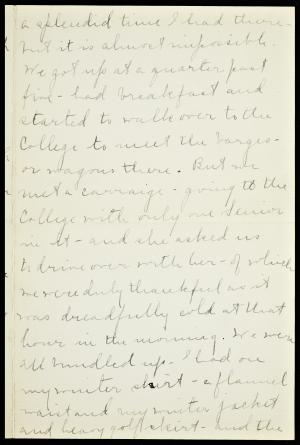 a splendid time I had there -
but it is almost impossible.
We got up at a quarter past
five - had breakfast and
started to walk over to the
College to meet the barges -
or wagons there. But we
met a carraige - going to the
College with only one Senior
in it - and she asked us
to drive over with her - of which
we were duly thankful as it
was dreadfully cold at that
hour in the morning. We were
all bundled up - I had on
my winter skirt - a flannel
waist and my winter jacket
and heavy golf skirt - and the